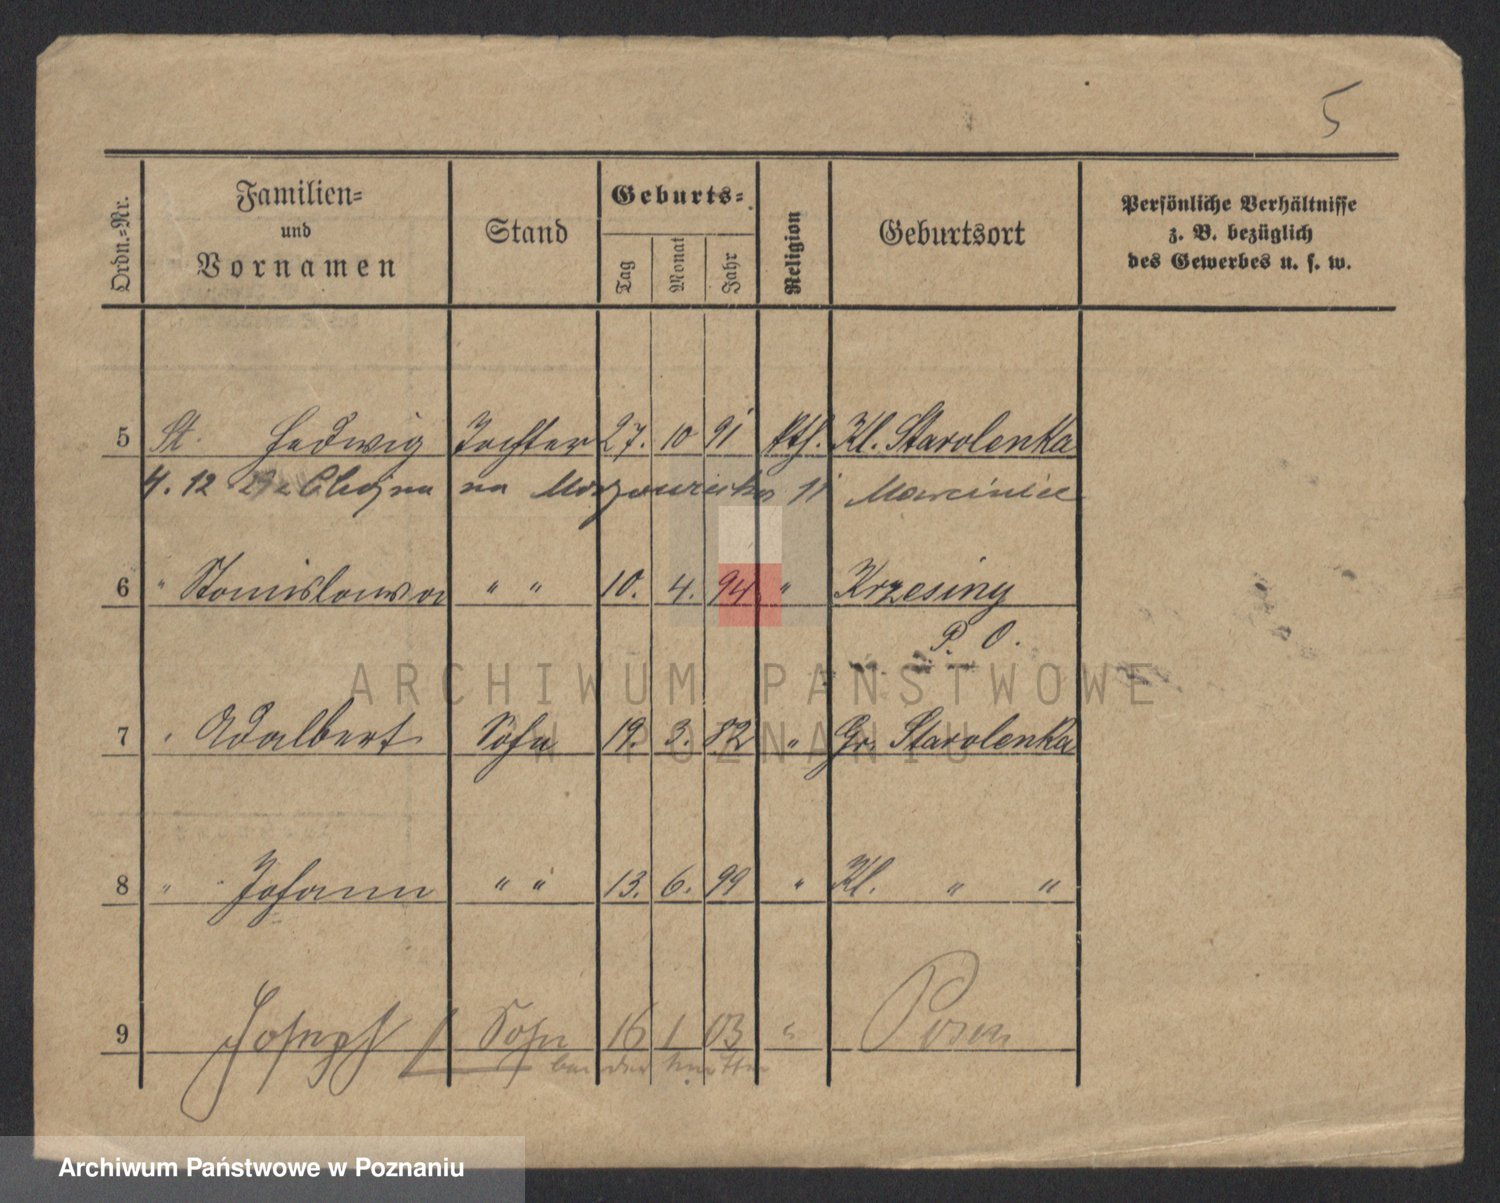 5
Ordn.-Nr.
Familien-
und
Vornamen
Stand
Geburts-
Tag
Monat
Jahr
Religion
Geburtsort
Persönliche Verhältnisse
z. B. bezüglich
des Gewerbes u. s. w.
5 St. Hedwig Tochter 27. 10 91 kth. Kl. Starolenka
4. 12 na 11
6 " Stanislawa " " 10. 4. 94 " Krzesiny
P. O.
ARCHIWUM PAŃSTWOWE
W POZNANIU
7 " Adalbert Sohn 19. 3. 82 " Gr. Starolenka
8 " Johann " " 13. 6. 99 " Kl. " "
9 Joseph Sohn 16 1 03 " Posen
bei der Mutter
Archiwum Państwowe w Poznaniu